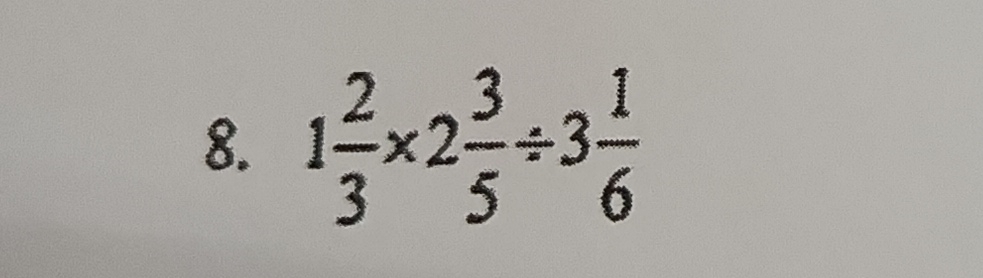 8. 1 2/3 × 2 3/5 ÷ 3 1/6